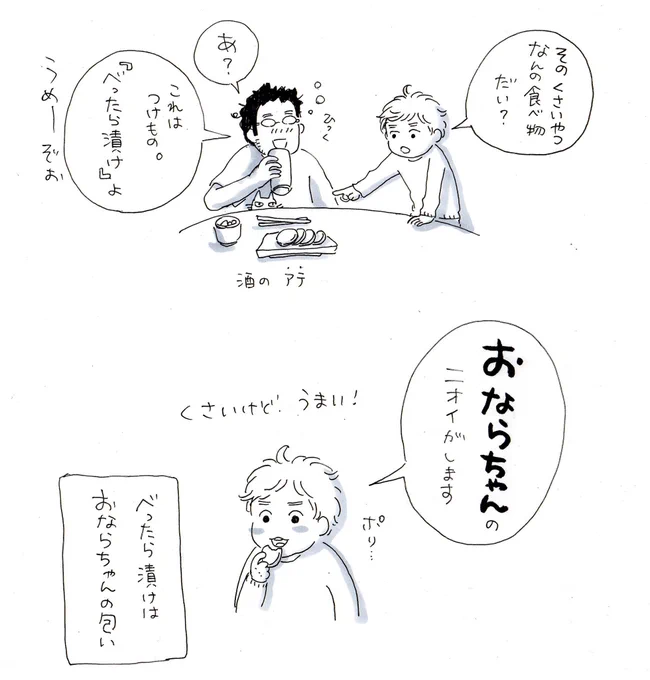 その くさいやつ
なんの食べ物
だい？
あ？
ひっく
これは
つけもの。
『べったら漬け』よ
うめーぞぉ
酒の アテ
おならちゃんの
ニオイがします
くさいけど うまい！
ポリ…
べったら漬けは
おならちゃんの匂い